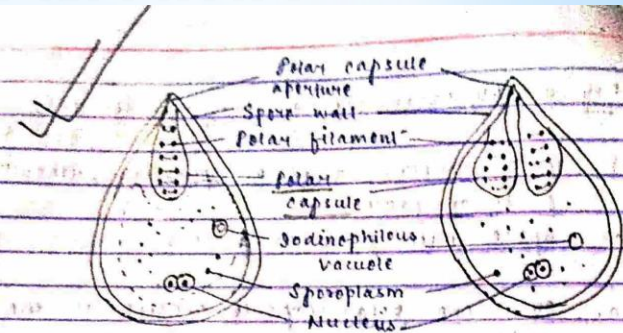 Polar capsule
aperture
Spore wall
Polar filament
Polar
capsule
Iodinophilous
vacuole
Sporoplasm
Nucleus